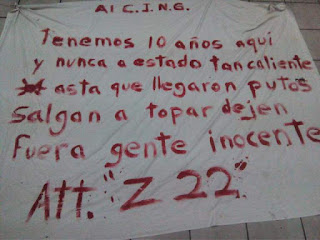 Al C.J.N.G.
Tenemos 10 años aqui
y nunca a estado tan caliente
asta que llegaron putos
Salgan a topar dejen
fuera gente inocente
Att. "Z 22"